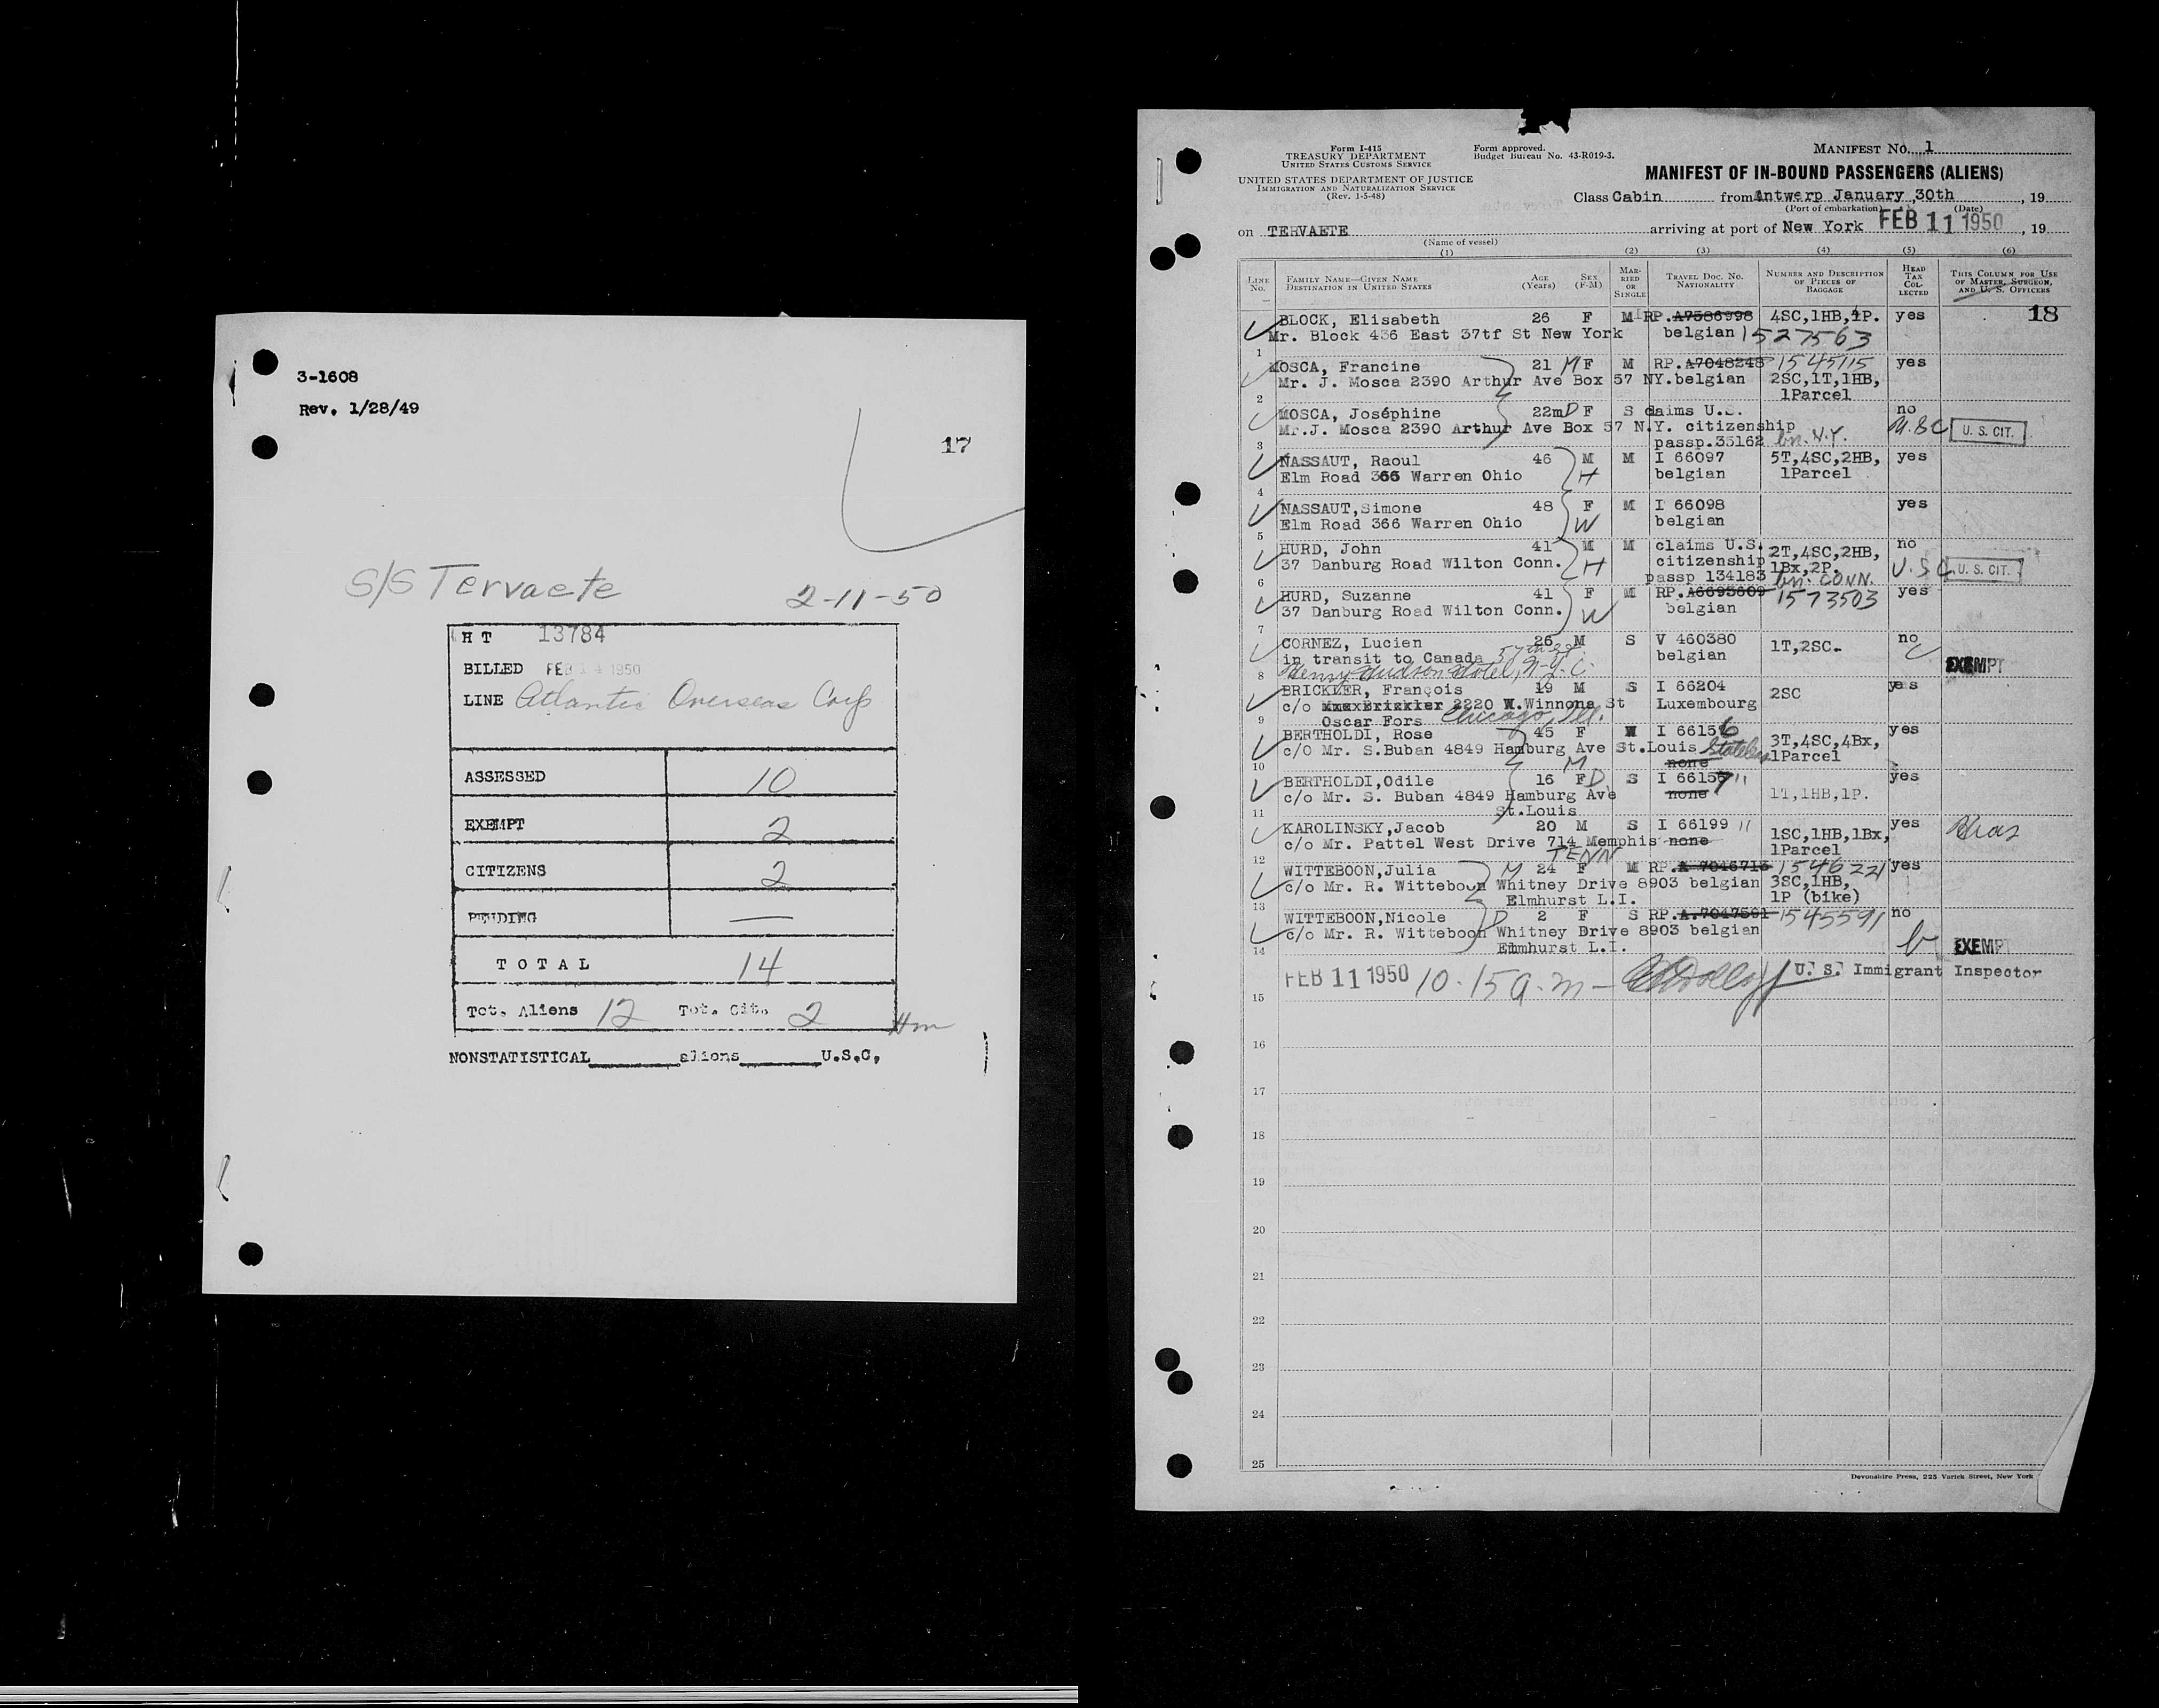 3-1608
Rev. 1/28/49
17
S/S Tervaete 2-11-50
HT 13784
BILLED FEB 14 1950
LINE Atlantic Overseas Corp
ASSESSED 10
EXEMPT 2
CITIZENS 2
PENDING —
TOTAL 14
Tot. Aliens 12 Tot. Cit. 2
NONSTATISTICAL______aliens______U.S.C.
Form I-415
TREASURY DEPARTMENT
UNITED STATES CUSTOMS SERVICE
Form approved.
Budget Bureau No. 43-R019-3.
UNITED STATES DEPARTMENT OF JUSTICE
IMMIGRATION AND NATURALIZATION SERVICE
(Rev. 1-5-48)
MANIFEST NO. 1
MANIFEST OF IN-BOUND PASSENGERS (ALIENS)
Class Cabin from Antwerp January 30th, 19
(Port of embarkation) (Date)
on TERVAETE arriving at port of New York FEB 11 1950, 19
(Name of vessel)
(1) (2) (3) (4) (5) (6)
LINE No. FAMILY NAME—GIVEN NAME DESTINATION IN UNITED STATES AGE (Years) SEX (F-M) MARRIED OR SINGLE TRAVEL DOC. NO. NATIONALITY NUMBER AND DESCRIPTION OF PIECES OF BAGGAGE HEAD TAX COLLECTED THIS COLUMN FOR USE OF MASTER, SURGEON, AND U. S. OFFICERS
18
BLOCK, Elisabeth 26 F M RP. A7386998 4SC,1HB,1P. yes
Mr. Block 436 East 37tf St New York belgian 1527563
1
MOSCA, Francine 21 M F M RP. A7048248 1545115 yes
Mr. J. Mosca 2390 Arthur Ave Box 57 NY. belgian 2SC,1T,1HB,
1Parcel
2
MOSCA, Joséphine 22m D F S claims U.S. no
Mr.J. Mosca 2390 Arthur Ave Box 57 N.Y. citizenship U.S.C. U. S. CIT.
passp.35162 bn. N.Y.
3
NASSAUT, Raoul 46 M M I 66097 5T,4SC,2HB, yes
Elm Road 366 Warren Ohio H belgian 1Parcel
4
NASSAUT,Simone 48 F M I 66098 yes
Elm Road 366 Warren Ohio W belgian
5
HURD, John 41 M M claims U.S. 2T,4SC,2HB, no
37 Danburg Road Wilton Conn. H citizenship 1Bx,2P. U.S.C. U. S. CIT.
passp 134183 bn. CONN.
6
HURD, Suzanne 41 F M RP. A6693609 1573503 yes
37 Danburg Road Wilton Conn. W belgian
7
CORNEZ, Lucien 26 M S V 460380 1T,2SC. no
in transit to Canada 57th St. belgian EXEMPT
Henry Hudson Hotel, N.Y.C.
8
BRICKLER, François 19 M S I 66204 2SC yes
c/o 2220 W.Winnona St Luxembourg
Oscar Fors Chicago, Ill.
9
BERTHOLDI, Rose 45 F W I 66156 3T,4SC,4Bx, yes
c/O Mr. S.Buban 4849 Hamburg Ave St.Louis Stateless 1Parcel
M none
10
BERTHOLDI,Odile 16 F D S I 66157 " yes
c/o Mr. S. Buban 4849 Hamburg Ave none 1T,1HB,1P.
St.Louis
11
KAROLINSKY,Jacob 20 M S I 66199 " 1SC,1HB,1Bx, yes Hias
c/o Mr. Pattel West Drive 714 Memphis none 1Parcel
TENN
12
WITTEBOON,Julia M 24 F M RP. A 7046713 1546221 yes
c/o Mr. R. Witteboon Whitney Drive 8903 belgian 3SC,1HB,
Elmhurst L.I. 1P (bike)
13
WITTEBOON,Nicole D 2 F S RP. A.7047591 1545591 no
c/o Mr. R. Witteboon Whitney Drive 8903 belgian
Elmhurst L.I. EXEMPT
14
FEB 11 1950 10.15 a.m— U. S. Immigrant Inspector
15
16
17
18
19
20
21
22
23
24
25
Devonshire Press, 225 Varick Street, New York